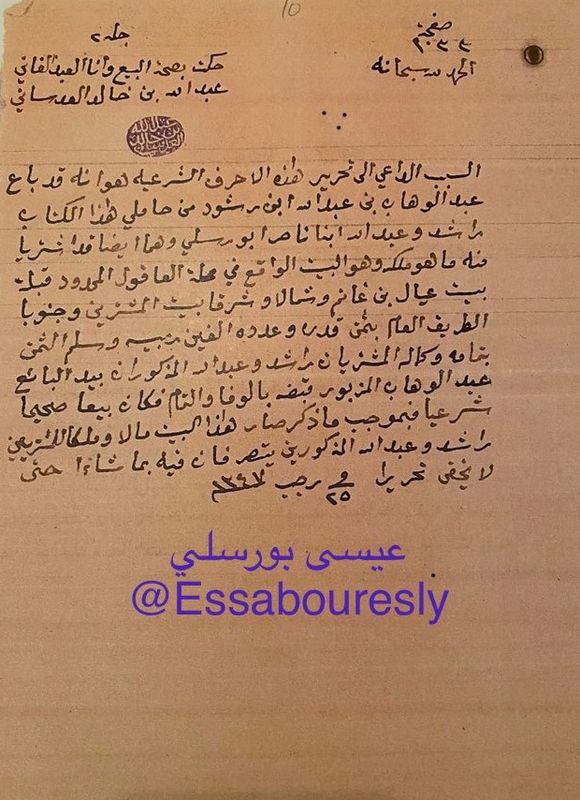 10
صفحة
٢٠٣٣
جلد ٢
الحمد لله سبحانه
حكمت بصحة البيع وأنا العبد الفاني
عبدالله بن خالد العدساني
السبب الداعي الى تحرير هذه الاحرف الشرعيه هو انه قد باع
عبدالوهاب بن عبدالله ابن رشود من حاملي هذا الكتاب
راشد وعبدالله ابنا ناصر ابورسلي وهما ايضا قد اشتريا
منه ما هو ملكه وهو البيت الواقع في محلة العاقول المحدود قبلة
بيت عيال بن غانم وشمالا وشرقا بيت المشترين وجنوبا
الطريق العام بثمن قدره وعدده الفين ربيه وسلم الثمن
بتمامه وكماله المشتريان راشد وعبدالله المذكوران بيد البائع
عبدالوهاب المزبور قبضه بالوفا والتمام فكان بيعا صحيحا
شرعيا فبموجب ما ذكر صار هذا البيت مالا وملكا للمشترين
راشد وعبدالله المذكورين يتصرفان فيه بما شاءا حتى
لا يخفى تحريرا في ٢٥ رجب ١٣٤٧
عيسى بورسلي
@Essabouresly